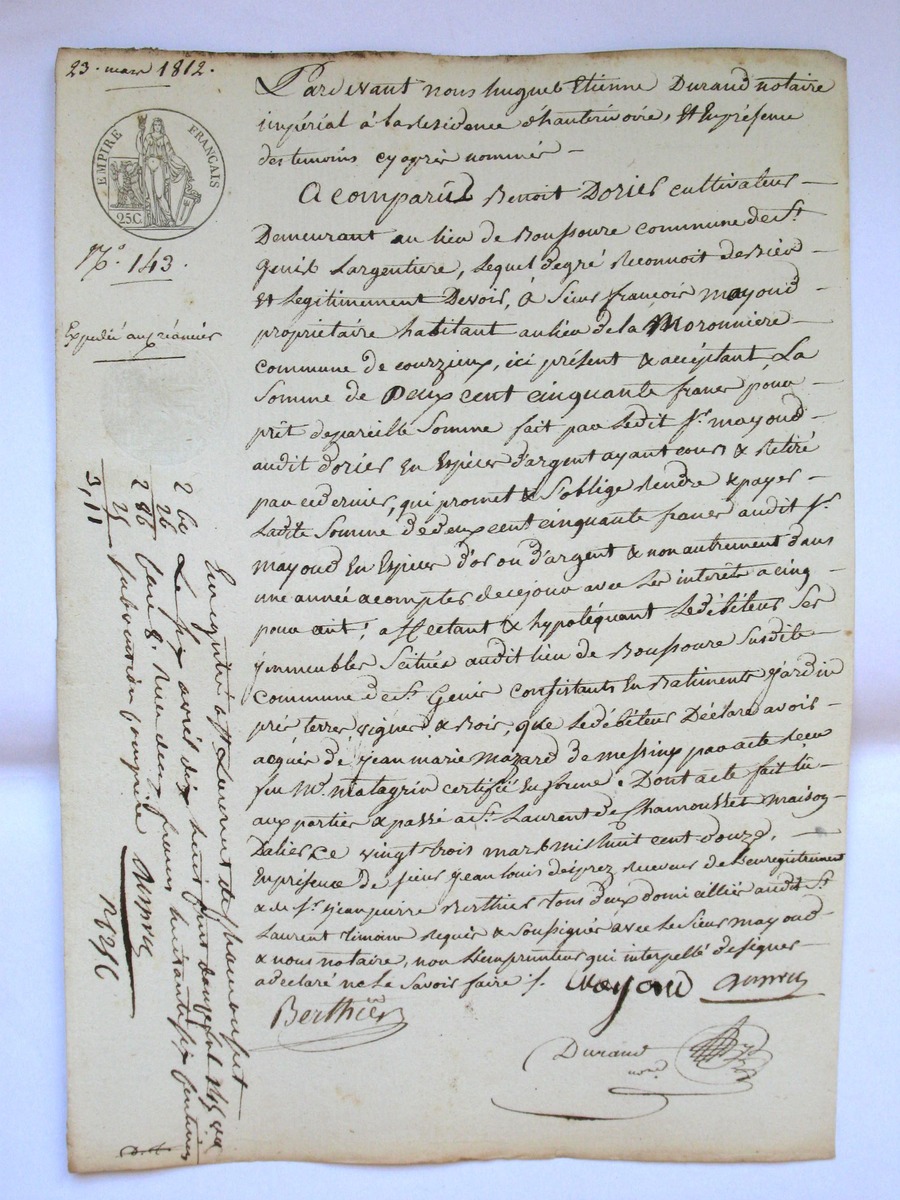 23. mars 1812.
EMPIRE FRANÇAIS
25C.
N.º 143.
Expedié au créancier
Pardevant nous hugues Etienne Durand notaire
impérial à la residence d'hauterivoire, Et En présence
des temoins cy après nommés —
A comparû Benoit Dorier cultivateur —
Demeurant au lieu de Boussoure commune de St.
Genis Largentiere, lequel degré reconnoit debvoir —
Et legitimement Devoir, à Sieur françois mayoud —
propriétaire habitant au lieu de la Moronniere
commune de courzieux, ici présent & acceptant La
Somme de Deux cent cinquante francs pour —
prêt de pareille Somme fait par ledit Sr. mayoud —
audit dorier En Espèces d'argent ayant cours & retiré
par ce dernier, qui promet & s'oblige rendre & payer —
Ladite Somme de deux cent cinquante francs audit Sr.
mayoud En Espèces d'or ou d'argent & non autrement dans
une année acompter de ce jour avec les interêts a cinq —
pour cent, affectant & hypotéquant le débiteur Ses
ymmeubles Scitués audit lieu de Boussoure Susdite —
Commune de St. Genis consistants En Batiments jardin
pré terre vignes & Bois, que le débiteur Déclare avoir —
acquis de jean marie mazard de messimy par acte recu
feu Me. matagrin certifié En forme: Dont acte fait lû
aux parties & passé a St. Laurent de Chamousset maison —
Dalier, Le vingt trois mars mil huit cent douze, —
En présence de sieur jean louis receveur de l'enregistrement
& de Sr. jean pierre Berthier tous deux domicilliés audit St.
Laurent temoins requis & Soussignés avec le Sieur mayoud —
& nous notaire, non l'emprunteur qui interpellé de signer —
a déclaré ne le Savoir faire /.
Mayoud
Berthier
Durand
not.
Enregistré a St. Laurent de chamousset
Le six avril dix huit cent douze fol. 145
case 8. recu deux francs huitantesix centimes
subvention comprise
2 60
26
2 86
25
3,11